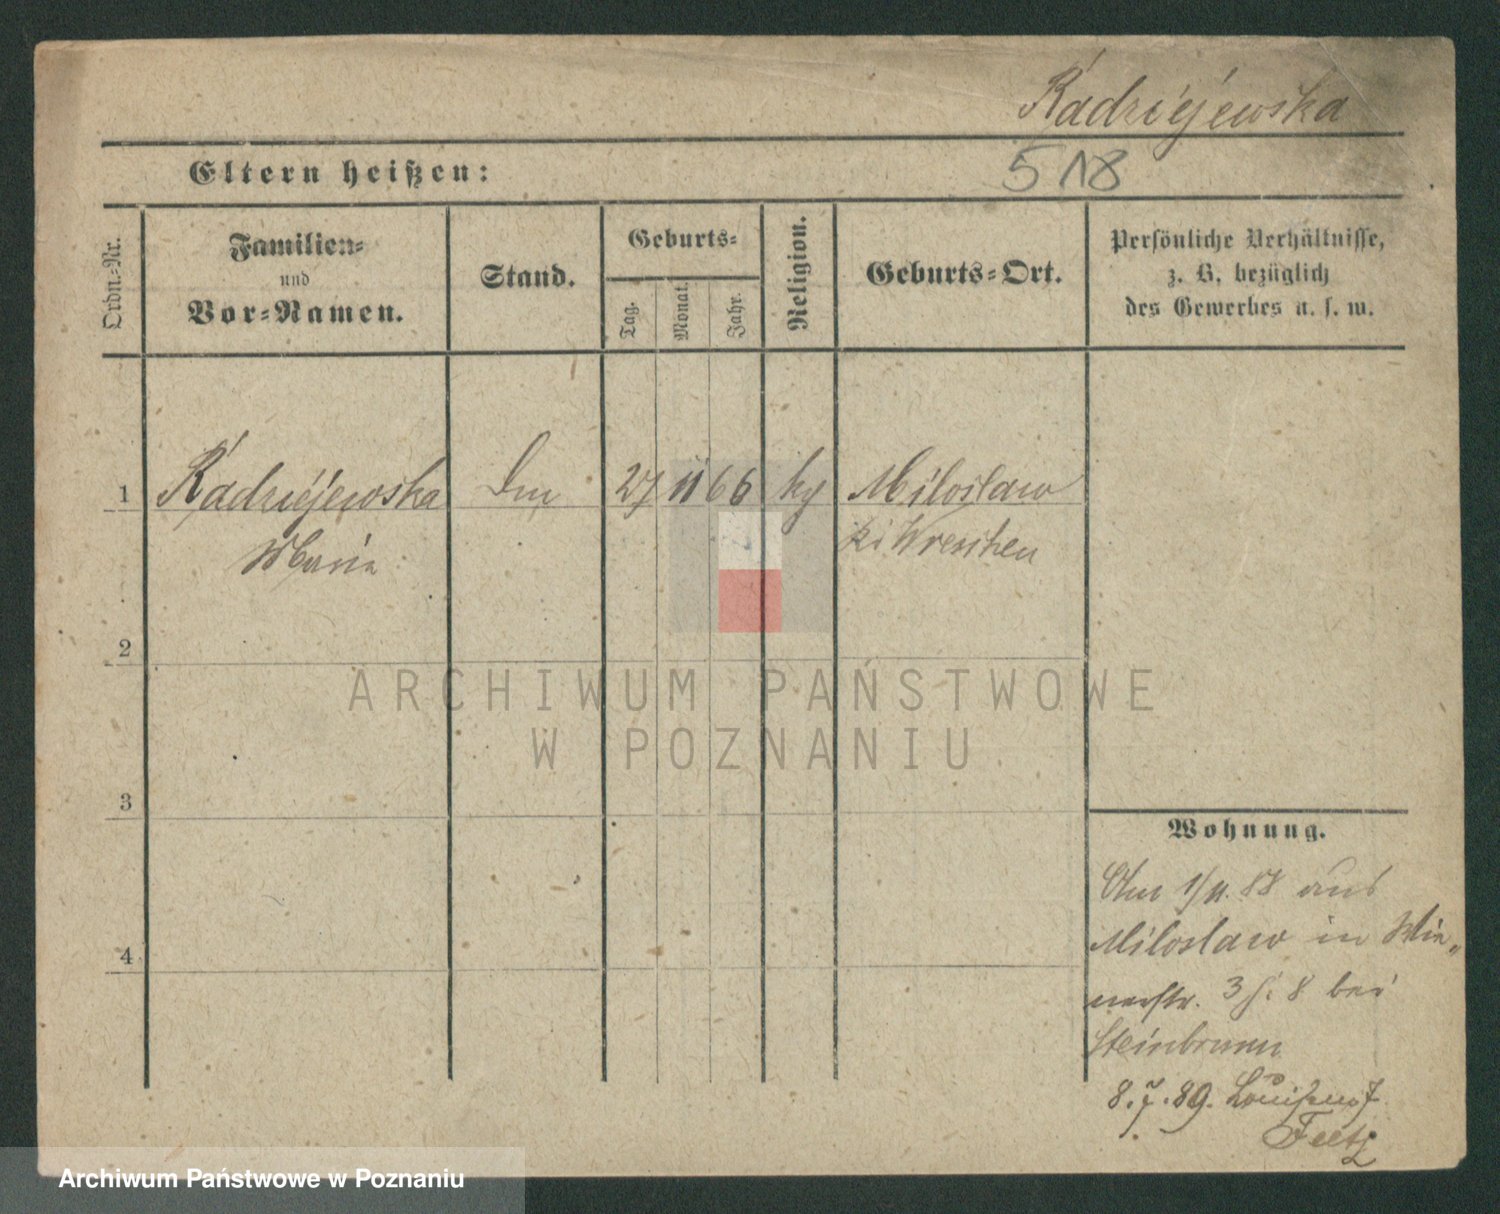 Radziéjewska
Eltern heißen:
518
Ordn.-Nr.
Familien-
und
Vor-Namen.
Stand.
Geburts-
Tag.
Monat.
Jahr.
Religion.
Geburts-Ort.
Persönliche Verhältnisse,
z. B. bezüglich
des Gewerbes u. s. w.
1 Radziéjewska 27 11 66 Miloslaw
Maria Wreschen
2
ARCHIWUM PAŃSTWOWE
W POZNANIU
3
Wohnung.
1/11. 88 aus
Miloslaw in Wie„
4
nerstr. 3 8 bei
Steinbrunn
8.7.89.
Archiwum Państwowe w Poznaniu